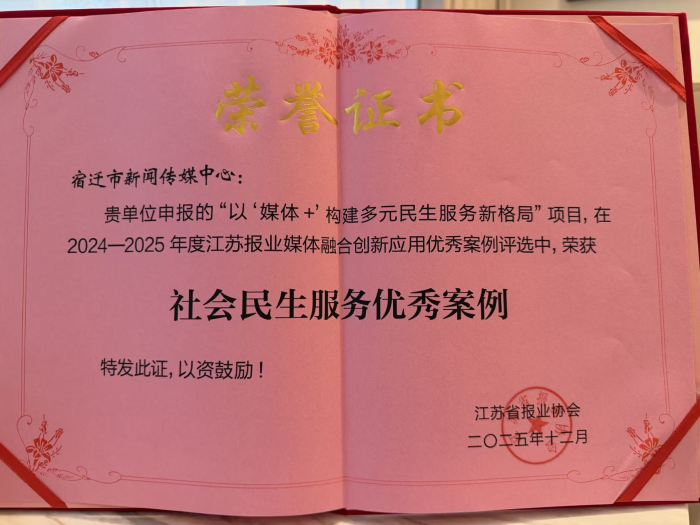 荣誉证书
宿迁市新闻传媒中心：
贵单位申报的“以‘媒体+’构建多元民生服务新格局”项目，在
2024—2025年度江苏报业媒体融合创新应用优秀案例评选中，荣获
社会民生服务优秀案例
特发此证，以资鼓励！
江苏省报业协会
二〇二五年十二月